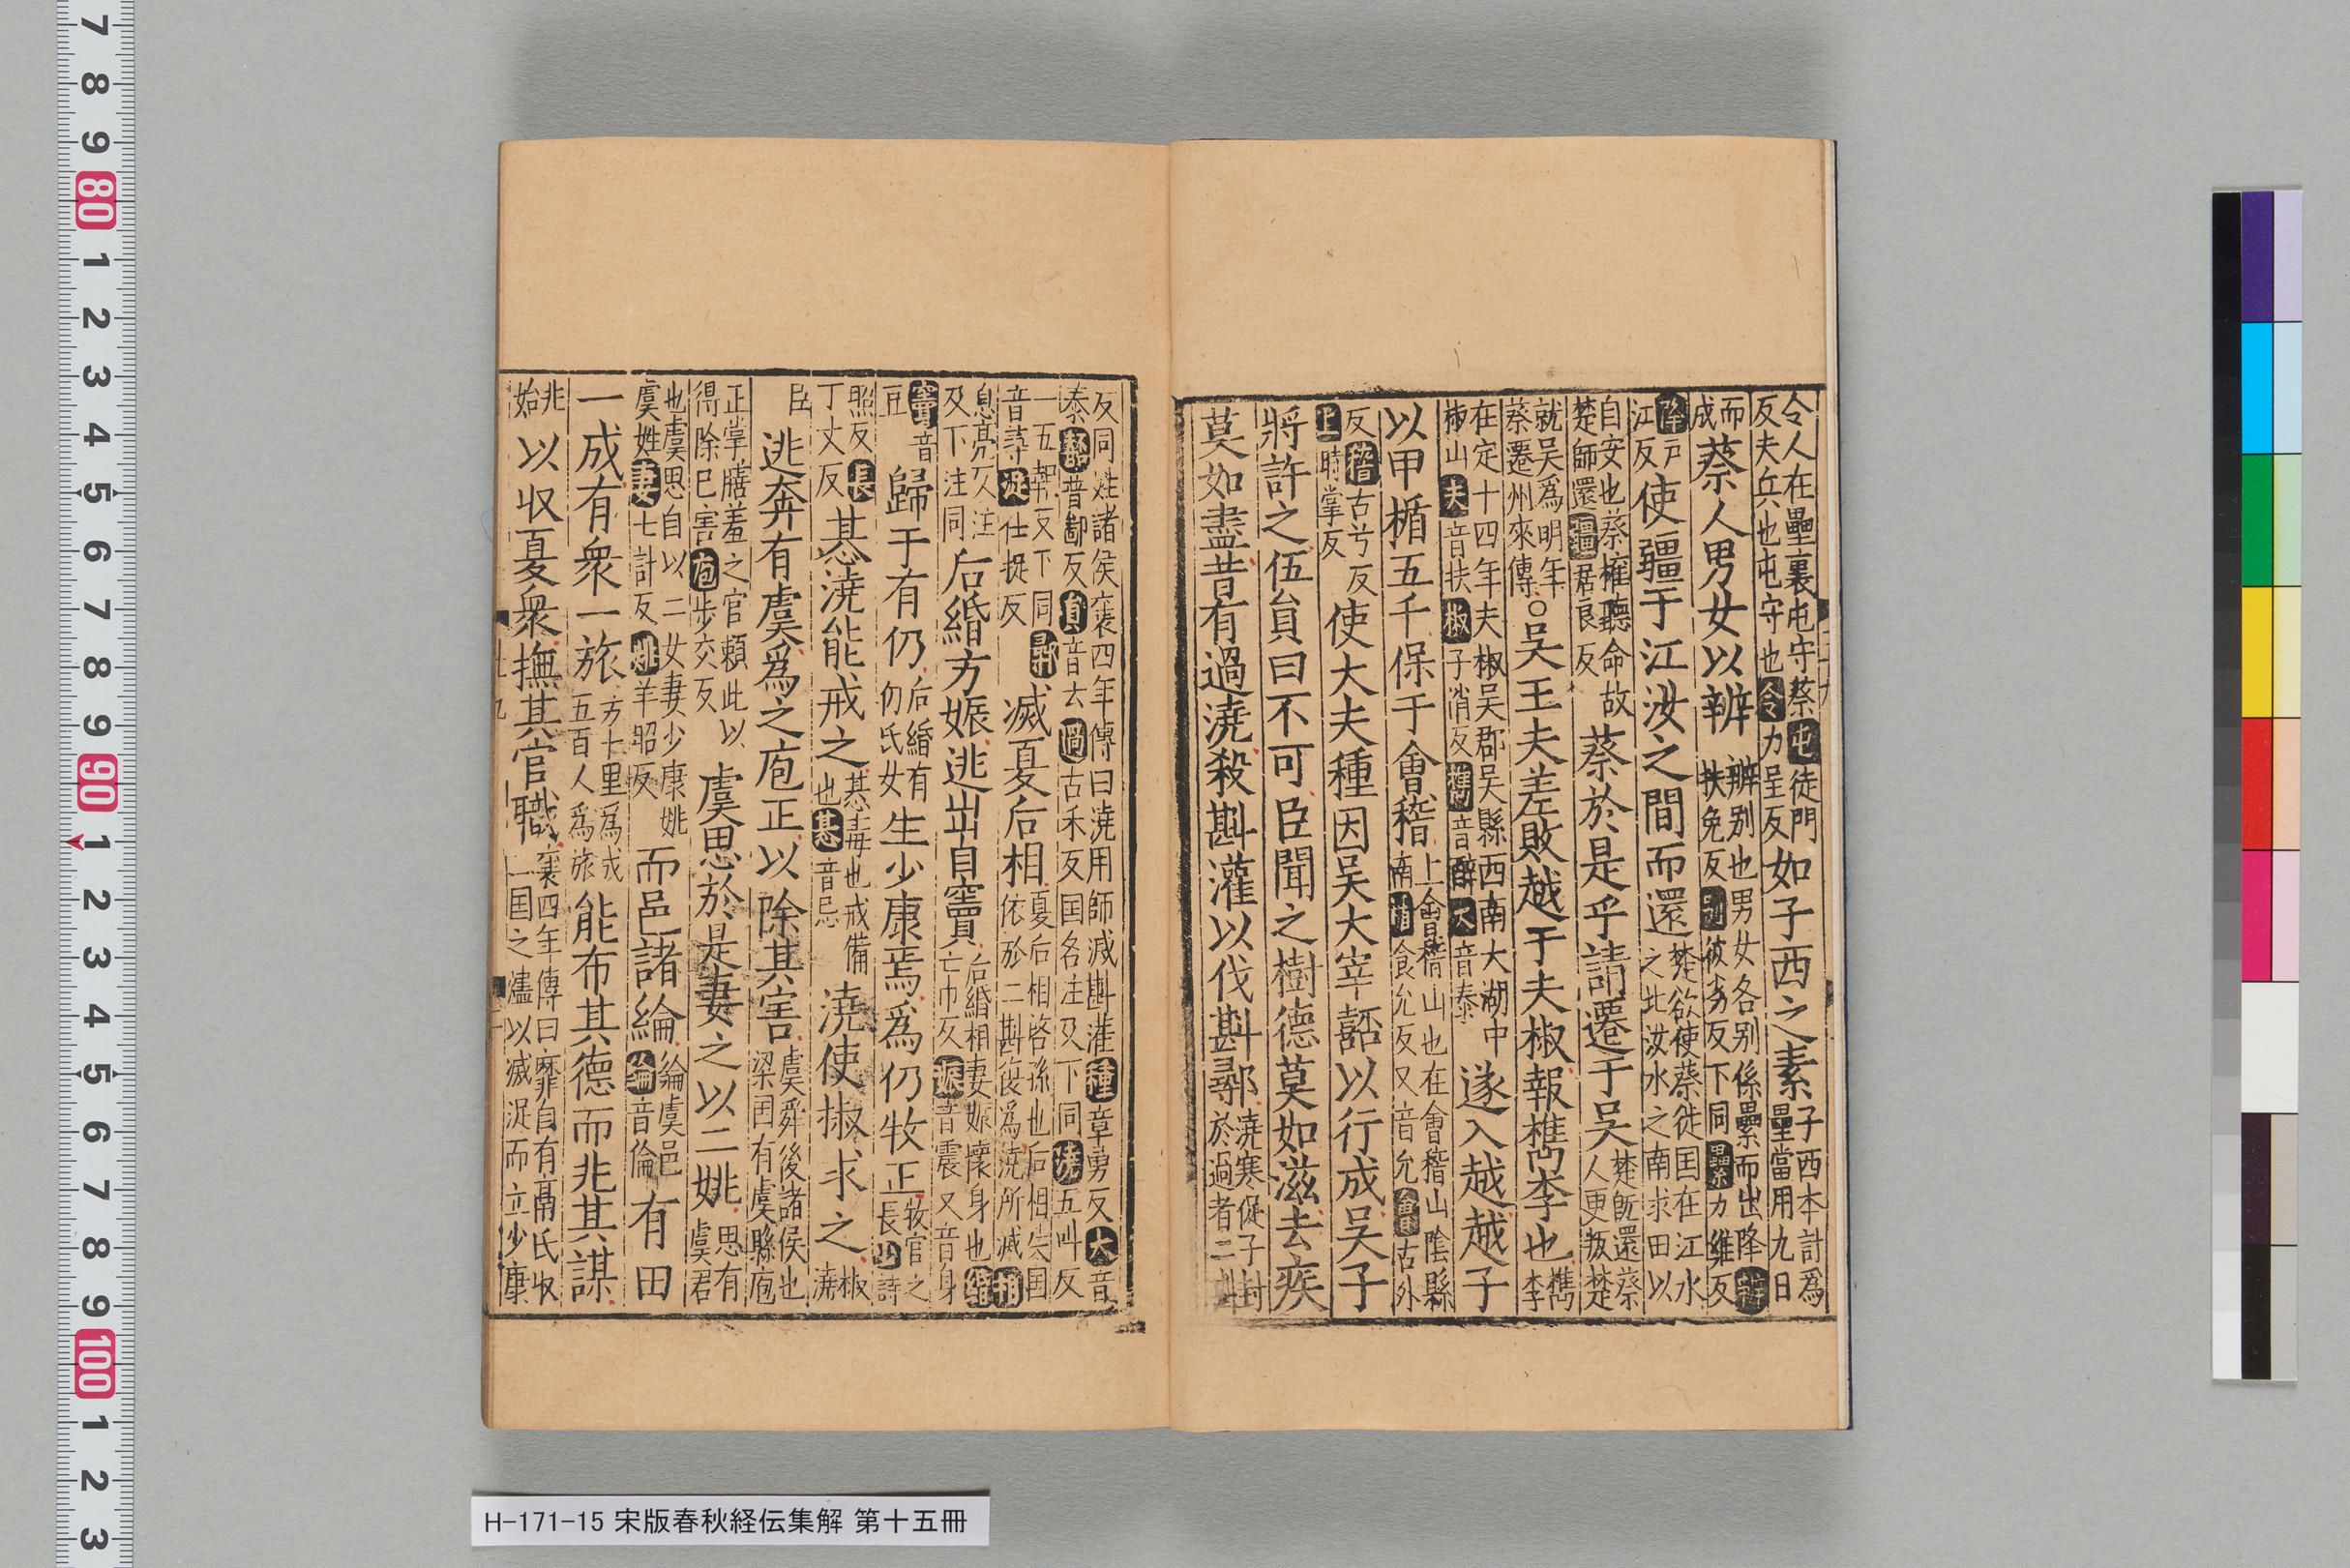 令人在壘裏屯守蔡屯徒門反夫兵也屯守也令力呈反如子西之素子西本計為壘當用九日
而成蔡人男女以辨辨別也男女各別係纍而出降辨扶免反別彼列反下同纍力維反
降戶江反使疆于江汝之間而還楚欲使蔡徙囯在江水之北汝水之南求田以
自安也蔡權聽命故楚師還疆居良反蔡於是乎請遷于吳楚旣還蔡人更叛楚
就吳為明年蔡遷州來傳○吳王夫差敗越于夫椒報檇李也檇李
在定十四年夫椒吳郡吳縣西南大湖中椒山夫音扶椒子消反檇音醉大音泰遂入越越子
以甲楯五千保于會稽上會稽山也在會稽山陰縣南楯食允反又音允會古外
反稽古兮反上時掌反使大夫種因吳大宰嚭以行成吳子
將許之伍員曰不可臣聞之樹德莫如滋去疾
莫如盡昔有過澆殺斟灌以伐斟鄩澆寒浞子封於過者二斟
反同姓諸侯襄四年傳曰澆用師滅斟灌種章勇反大音泰嚭普鄙反員音云過古禾反囯名注及下同澆五叫反
一五報反下同鄩音尋浞仕捉反滅夏后相夏后相啓孫也后相失囯依於二斟復為澆所滅相
息亮反注及下注同后緡方娠逃出自竇后緡相妻娠懷身也緡亡巾反娠音震又音身
竇音豆歸于有仍后緡有仍氏女生少康焉為仍牧正牧官之長少詩
照反長丁丈反惎澆能戒之惎毒也戒備也惎音忌澆使椒求之椒澆
臣逃奔有虞為之庖正以除其害虞舜後諸侯也梁囯有虞縣庖
正掌膳羞之官賴此以得除已害庖步交反虞思於是妻之以二姚思有虞君
也虞思自以二女妻少康姚虞姓妻七計反姚羊昭反而邑諸綸綸虞邑綸音倫有田
一成有衆一旅方十里為成五百人為旅能布其德而兆其謀
兆始以収夏衆撫其官職襄四年傳曰靡自有鬲氏収二囯之燼以滅浞而立少康
H-171-15 宋版春秋経伝集解 第十五冊